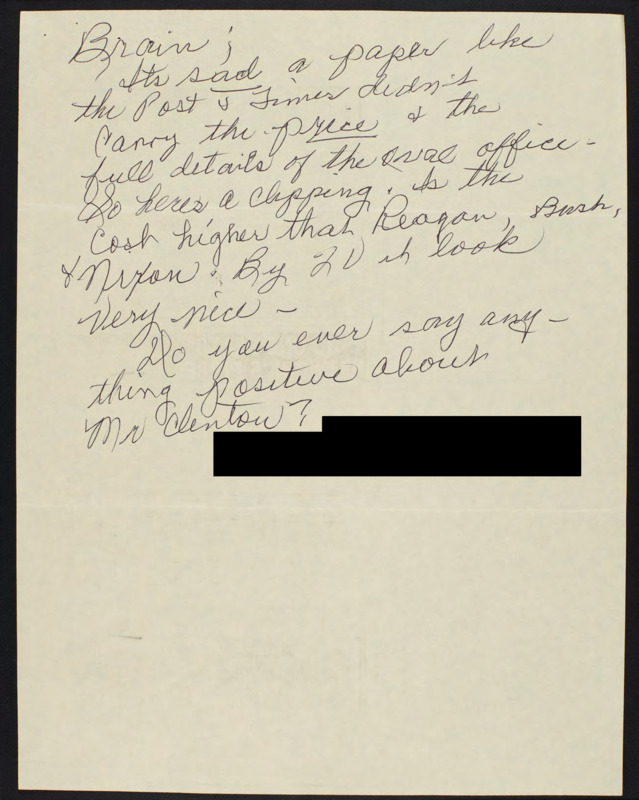 Brain;
Its sad a paper like
the Post & Times didn't
carry the price & the
full details of the oval office -
So heres a clipping. Is the
cost higher that Reagan, Bush,
& Nixon. By TV it look
very nice -
Do you ever say any-
thing positive about
Mr Clenton?